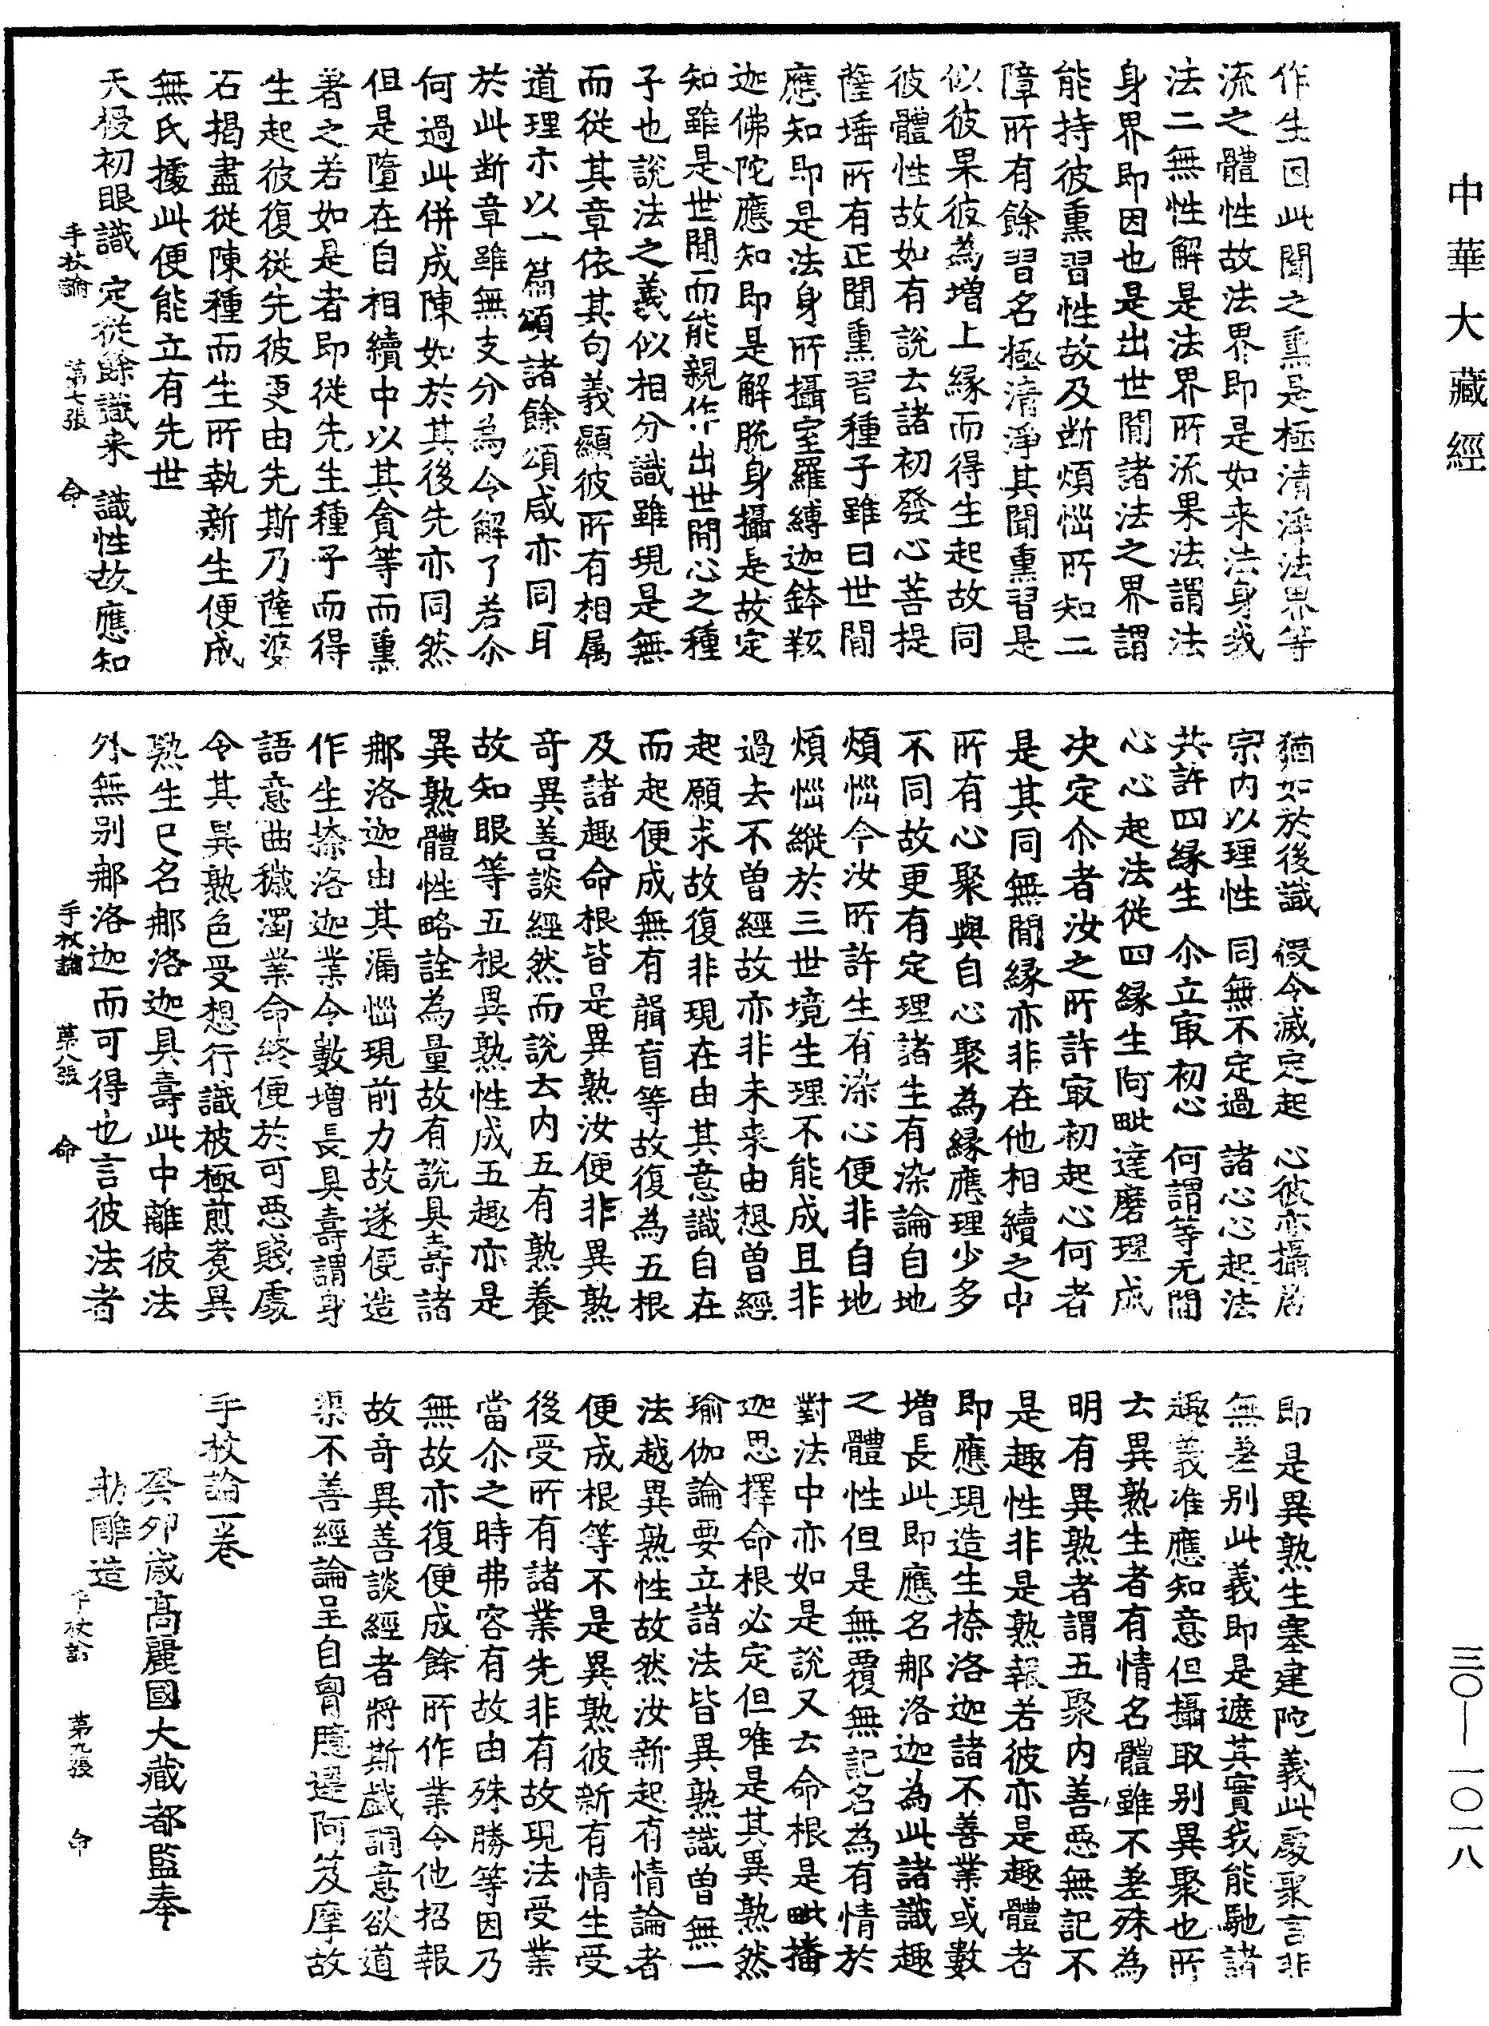 中華大藏經
作生因此聞之熏是極清淨法界等
流之體性故法界即是如来法身我
法二無性解是法界所流果法謂法
身界即因也是出世間諸法之界謂
能持彼熏習性故及断煩惱所知二
障所有餘習名極清淨其聞熏習是
似彼果彼為增上緣而得生起故同
彼體性故如有說云諸初發心菩提
薩埵所有正聞熏習種子雖曰世間
應知即是法身所攝室羅縛迦鉢羅
迦佛陀應知即是解脫身攝是故定
知雖是世間而能親作出世間心之種
子也說法之義似相分識雖現是無
而從其章依其句義顯彼所有相属
道理亦以一篇頌諸餘頌咸亦同耳
於此断章雖無支分為令解了若尒
何過此併成陳如於其後先亦同然
但是墮在自相續中以其貪等而熏
著之若如是者即從先生種子而得
生起彼復從先彼更由先斯乃薩婆
若揭盡從陳種而生所執新生便成
無氏據此便能立有先世
天授初眼識 定從餘識来 識性故應知
手杖論 第七張 命
猶如於後識 假令滅定起 心彼亦攝居
宗内以理性 同無不定過 諸心心起法
共許四緣生 尒立冣初心 何謂等无間
心心起法從四緣生阿毗達磨理成
决定尒者汝之所許冣初起心何者
是其同無間緣亦非在他相續之中
所有心聚與自心聚為緣應理少多
不同故更有定理諸生有染論自地
煩惱今汝所許生有染心便非自地
煩惱縱於三世境生理不能成且非
過去不曾經故亦非未来由想曾經
起願求故復非現在由其意識自在
而起便成無有聾盲等故復為五根
及諸趣命根皆是異熟汝便非異熟
奇異善談經然而說云内五有熟養
故知眼等五根異熟性成五趣亦是
異熟體性略詮為量故有說具壽諸
那洛迦由其漏惱現前力故遂便造
作生捺洛迦業令數增長具壽謂身
語意曲穢濁業命終便於可惡賤處
令其異熟色受想行識被極煎煑異
熟生已名那洛迦具壽此中離彼法
外無別那洛迦而可得也言彼法者
手杖論 第八張 命
即是異熟生塞建陀義此處聚言非
無差別此義即是遮其實我能馳諸
趣義准應知意但攝取別異聚也所
云異熟生者有情名體雖不差殊為
明有異熟者謂五聚内善惡無記不
是趣性非是熟報若彼亦是趣體者
即應現造生捺洛迦諸不善業或數
增長此即應名那洛迦為此諸識趣
之體性但是無覆無記名為有情於
對法中亦如是說又云命根是毗播
迦思擇命根必定但唯是其異熟然
瑜伽論要立諸法皆異熟識曾無一
法越異熟性故然汝新起有情論者
便成根等不是異熟彼新有情生受
後受所有諸業先非有故現法受業
當尒之時弗容有故由殊勝等因乃
無故亦復便成餘所作業令他招報
故奇異善談經者將斯戲調意欲道
渠不善經論呈自胷臆違阿笈摩故
手杖論一卷
癸卯歲高麗國大藏都監奉
勑雕造
手杖論 第九張 命
三〇—一〇一八